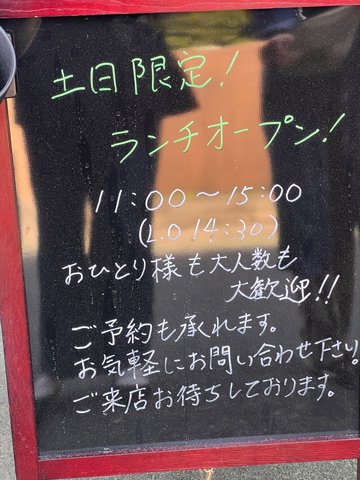 土日限定!
ランチオープン!
11:00〜15:00
(L.O 14:30)
おひとり様も大人数も
大歓迎!!
ご予約も承れます。
お気軽にお問い合わせ下さい!
ご来店お待ちしております。